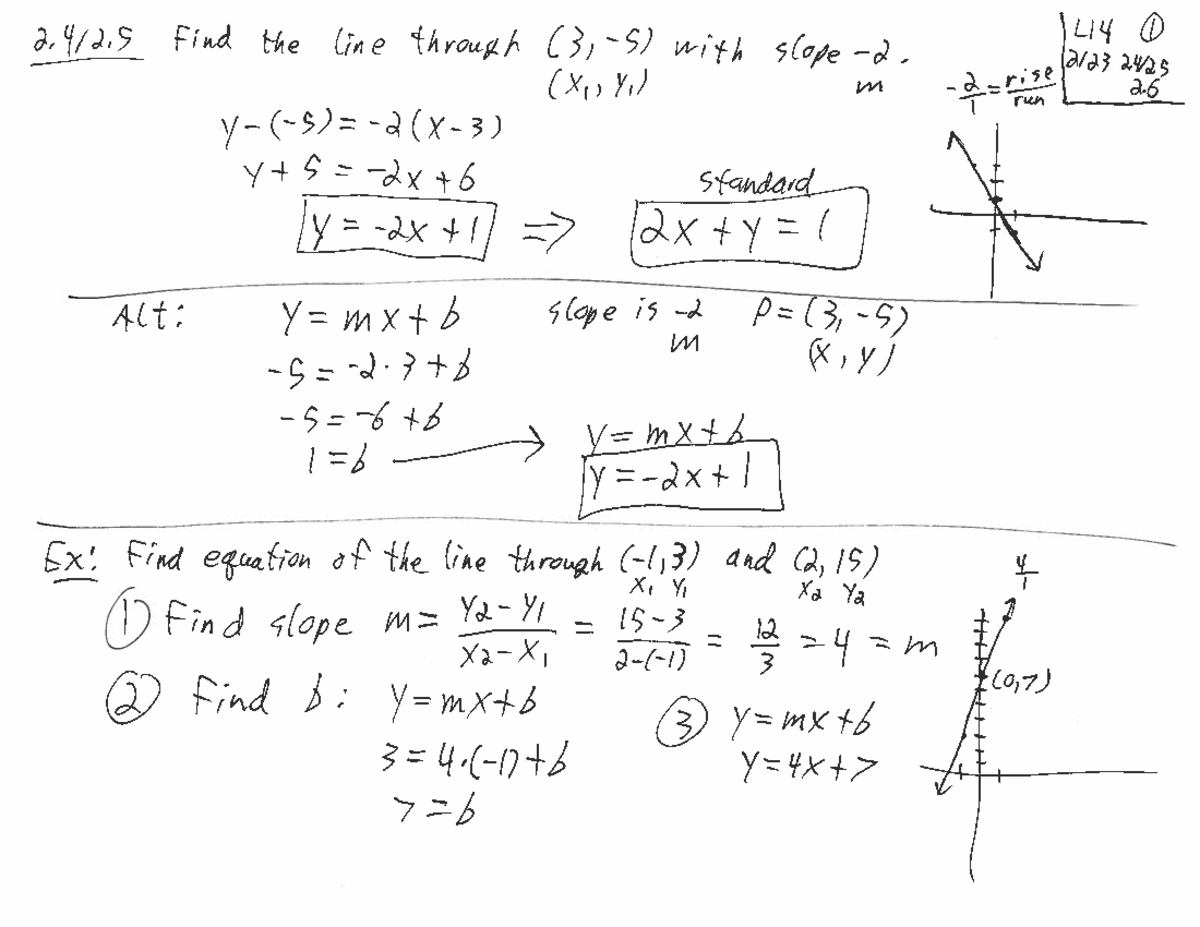 2.4/2.5 Find the line through (3, -5) with slope -2.
(x₁, y₁) m
L14 ①
2/23 2.4/2.5
2.6
-2/1 = rise/run
y-(-5) = -2(x-3)
y+5 = -2x+6
y = -2x+1 ⇒ standard 2x+y = 1
Alt: y = mx+b slope is -2 P = (3, -5)
m (x, y)
-5 = -2·3+b
-5 = -6+b
1 = b → y = mx+b
y = -2x+1
Ex: Find equation of the line through (-1,3) and (2, 15)
x₁ y₁ x₂ y₂
① Find slope m = y₂-y₁/x₂-x₁ = 15-3/2-(-1) = 12/3 = 4 = m
② Find b: y = mx+b
3 = 4·(-1)+b
7 = b
③ y = mx+b
y = 4x+7
4/1
(0,7)